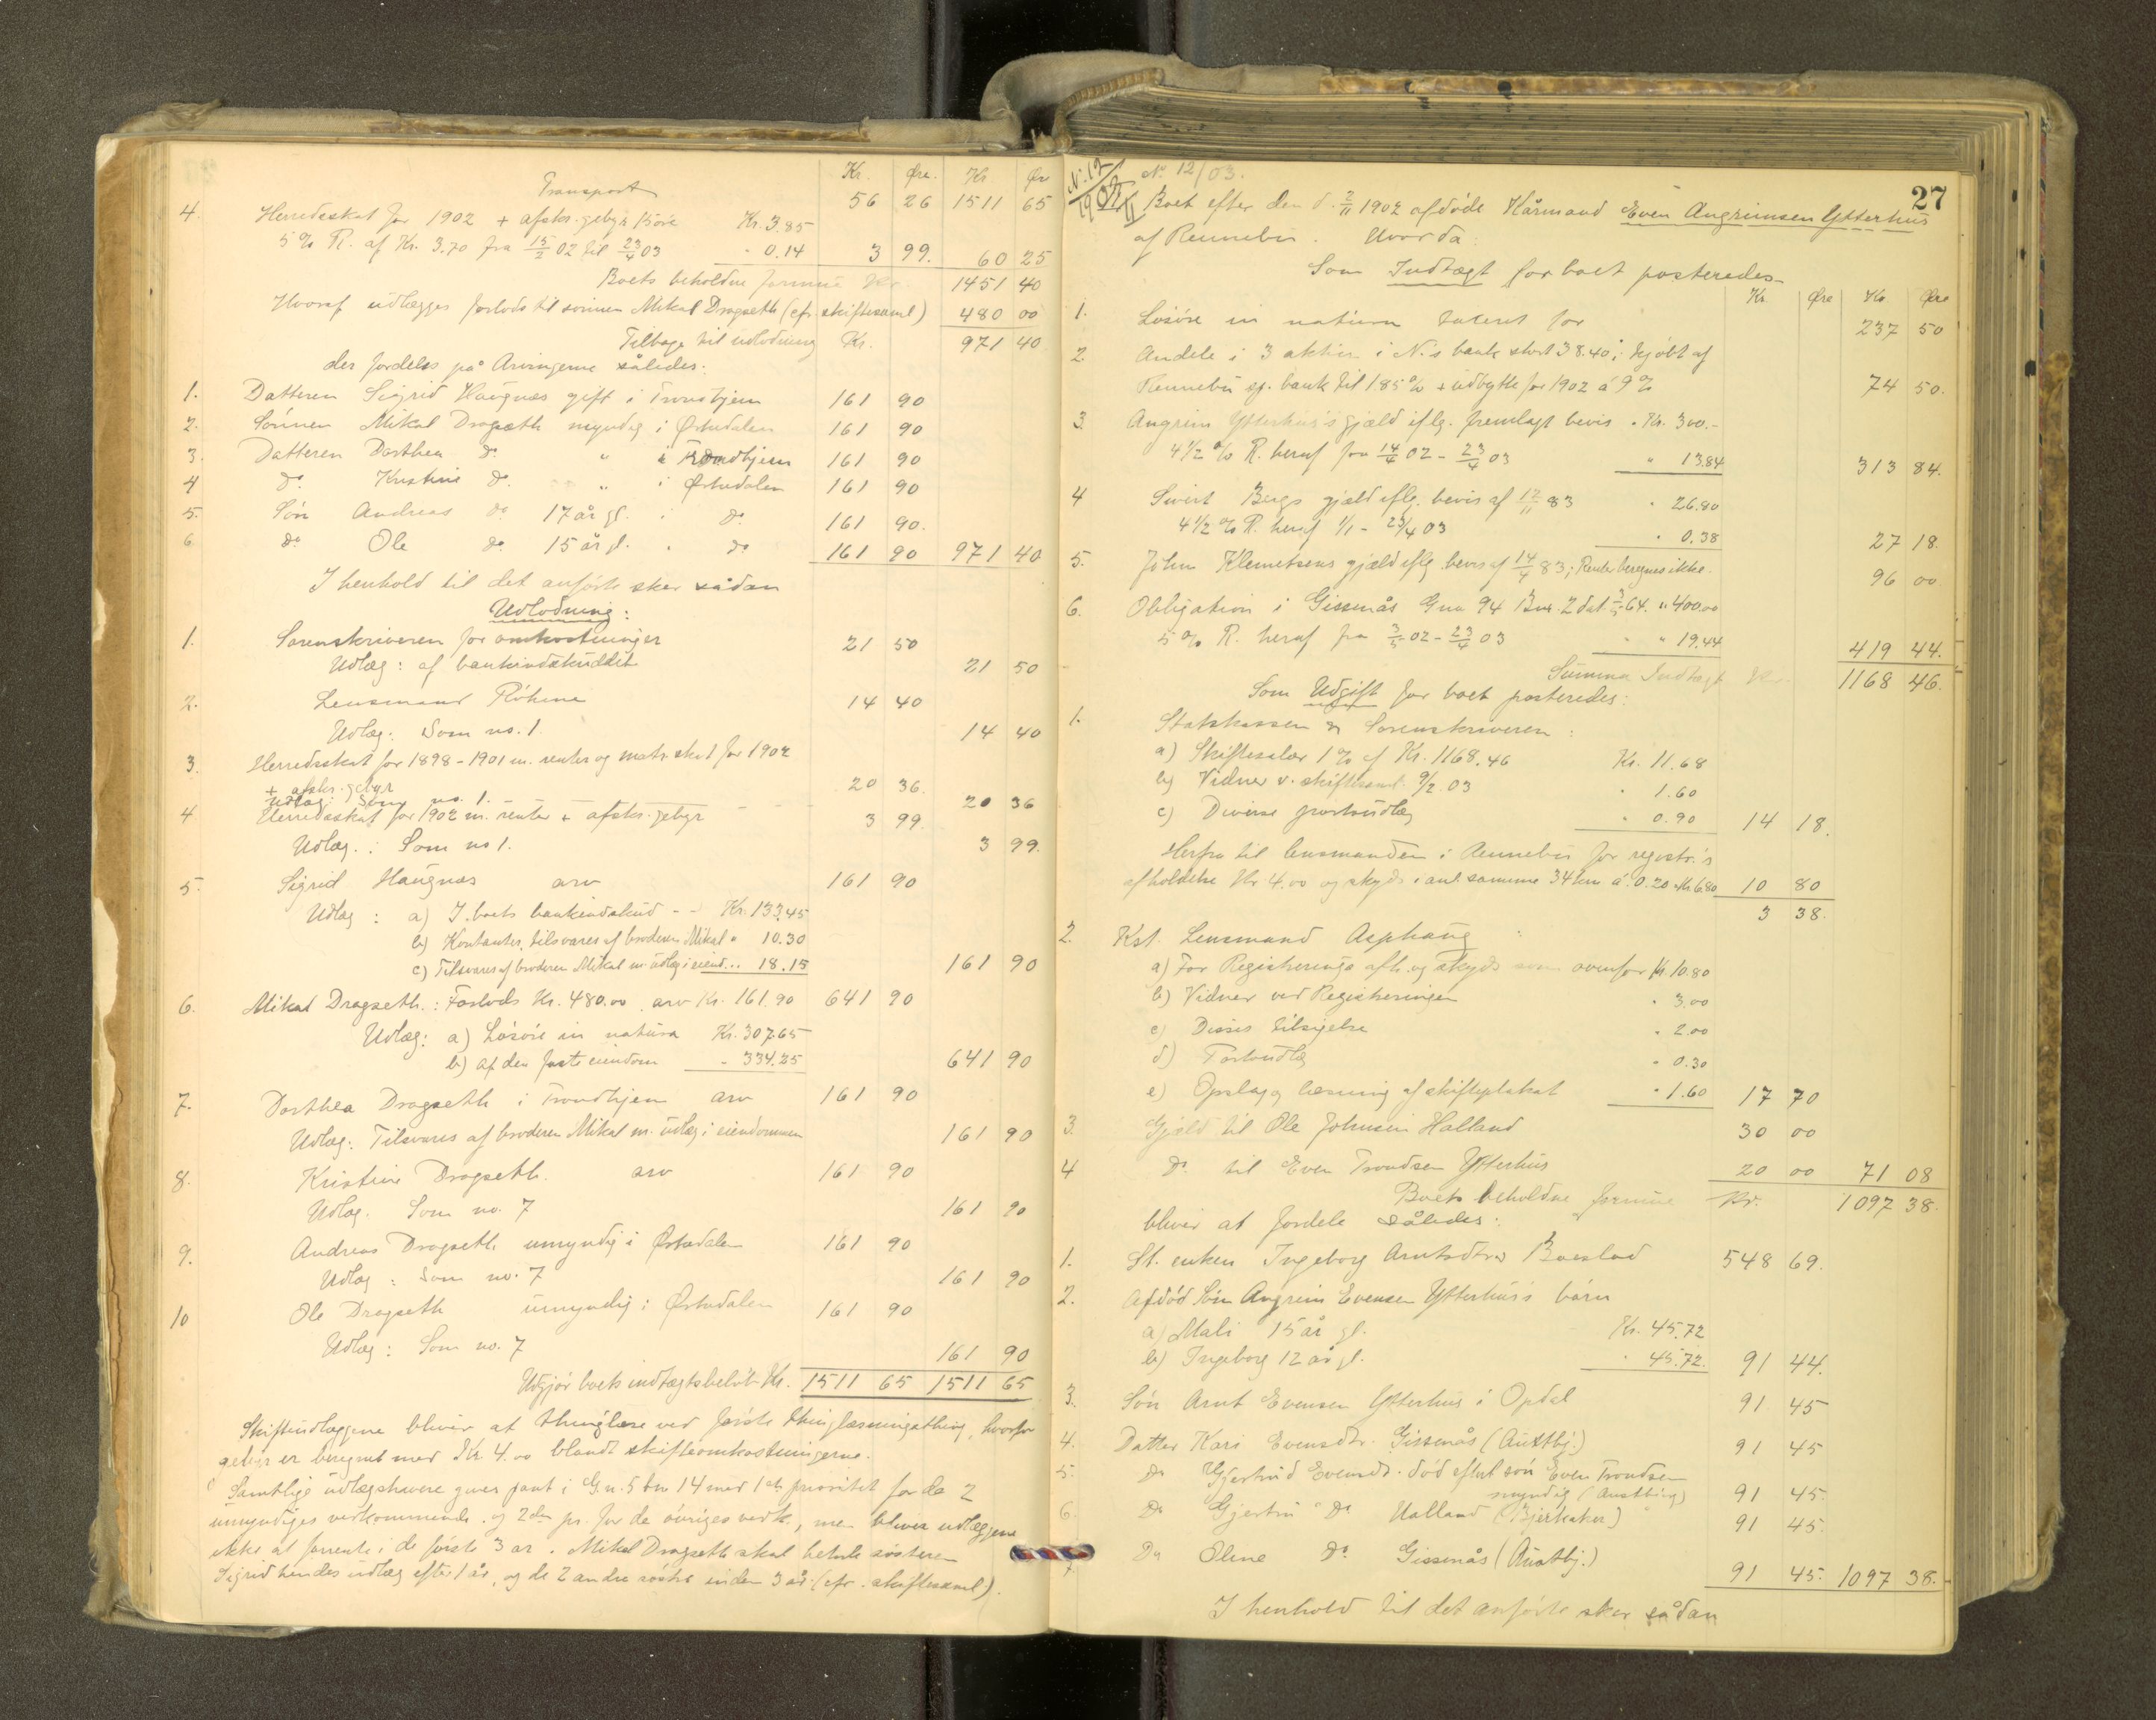 Kr. Øre. Kr Ør
Transport 56 26 1511 65
4. Herredsskat for 1902 + afskr. gebyr Kr. 3.85
5 % R. af Kr. 3.70 fra 15/2 02 til 23/4 03 " 0.14 3 99. 60 25
Boets beholdne formue Kr. 1451 40
Hvoraf udlægges forlods til sønnen Mikal Dragseth (cfr. skiftesaml) 480 00
Tilbage til udlodning Kr. 971 40
der fordeles på Arvingerne således:
1. Datteren Sigrid Haugnæs gift i Trondhjem 161 90
2. Sønnen Mikal Dragseth myndig i Ørkedalen 161 90
3. Datteren Dorthea do " i Trondhjem 161 90
4 do Kristine do " i Ørkedalen 161 90
5. Søn Andreas do 17 år gl. i do 161 90.
6 do Ole do 15 år gl. " do 161 90 971 40
I henhold til det anførte sker sådan
Udlodning:
1. Sorenskriveren for omkostninger 21 50
Udlæg: af bankindskuddet 21 50
2. Lensmand Röhme 14 40
Udlæg: Som no. 1. 14 40
3. Herredsskat for 1898-1901 m. renter og matr. skat for 1902
+ afskr. gebyr 20 36.
Udlæg: Som no. 1. 20 36
4 Herredsskat for 1902 m. renter + afskr. gebyr 3 99.
Udlæg: Som no 1. 3 99.
5. Sigrid Haugnæs arv 161 90
Udlæg: a) I boets bankindskud - - Kr. 133.45
b) Kontanter, tilsvares af broderen Mikal " 10.30
c) Tilsvares af broderen Mikal m. udlæg i eiend... 18.15 161 90
6. Mikal Dragseth: Forlods Kr. 480.00 arv Kr. 161.90 641 90
Udlæg: a) Løsøre in natura Kr. 307.65
b) af den faste eiendom " 334.25 641 90
7. Dorthea Dragseth i Trondhjem arv 161 90
Udlæg: Tilsvares af broderen Mikal m. udlæg i eiendommen 161 90
8. Kristine Dragseth. arv 161 90
Udlæg. Som no. 7 161 90
9. Andreas Dragseth umyndig i Ørkedalen 161 90
Udlæg: Som no. 7 161 90
10 Ole Dragseth umyndig i Ørkedalen 161 90
Udlæg: Som no. 7 161 90
Udgjør boets indtægtsbeløb Kr. 1511 65 1511 65
Skifteudlæggene bliver at thinglæse ved første thinglæsningsthing, hvorfor
gebyr er beregnet med Kr. 4.00 blandt skifteomkostningerne.
Samtlige udlægshavere gives pant i G.n. 5 bn 14 med 1ste prioritet for de 2
umyndiges vedkommende og 2den pr. for de øvriges vedk., men bliver udlæggene
ikke at forrente i de første 3 år. Mikal Dragseth skal betale søsteren
Sigrid hendes udlæg efter 1 år, og de 2 andre søstre inden 3 år. (cfr. skiftesaml).
27
N. 12/1903
No 12/03.
Boet efter den d. 2/11 1902 afdøde Kårmand Even Angrimsen Ytterhus
af Rennebu. Hvorda:
Som Indtægt for boet posteredes
Kr. Øre Kr. Øre
1. Løsøre in natura taxeret for 237 50
2. Andele i 3 aktier i N.s bank stort 38.40; kjøbt af
Rennebu sp. bank til 185 % + udbytte for 1902 á 9 % 74 50.
3. Angrim Ytterhus's gjæld iflg. fremlagt bevis " Kr. 300.-
4 1/2 % R. heraf fra 14/4 02 - 23/4 03 " 13.84 313 84.
4 Sivert Bergs gjæld iflg. bevis af 17/11 83 " 26.80
4 1/2 % R. heraf 1/1 - 23/4 03 " 0.38 27 18.
5. John Klemetsens gjæld iflg bevis af 14/4 83; Renter beregnes ikke. 96 00
6. Obligation i Gissenås Gno 94 Bnr. 2 dat. 3/5 64. " 400.00
5 % R. heraf fra 3/5 02 - 23/4 03 " " 19.44 419 44.
Summa Indtægt Kr. 1168 46.
Som Udgift for boet posteredes:
1. Statskassen og Sorenskriveren:
a) Skiftesalær 1 % af Kr. 1168.46 Kr. 11.68
b) Vidner v. skiftesaml. 9/2. 03 " 1.60
c) Diverse portoudlæg " 0.90 14 18.
Herfra til lensmanden i Rennebu for registr.'s
afholdelse Kr 4.00 og skyds i anl. samme 34 km á 0.20 = Kr 6.80 10 80
3 38.
2. Kst. Lensmand Asphaug:
a) For Registrerings afh. og skyds som ovenfor Kr. 10.80
b) Vidner ved Registreringen " 3.00
c) Disses tilsigelse " 2.00
d) Portoudlæg " 0.30
e) Opslag og læsning af skifteplakat " 1.60 17 70
3. Gjæld til Ole Johnsen Halland 30 00
4 do til Even Trondsen Ytterhus 20 00 71 08
Boets beholdne formue Kr. 1097 38.
bliver at fordele således:
1. St. enken Ingeborg Arntsdtrs Boeslod 548 69.
2. Afdød Søn Angrim Evensen Ytterhus's børn
a) Mali 15 år gl. Kr. 45.72
b) Ingeborg 12 år gl. " 45.72. 91 44.
3. Søn Arnt Evensen Ytterhus i Opdal 91 45
4. Datter Kari Evensdtr. Gissenås (Austbj.) 91 45
5. do Gjertrud Evensdt. død eftel søn Even Trondsen
myndig (Austbjerg) 91 45.
6. Do Gjertru " Do Halland (Bjerkaker) 91 45.
7. Do Oline Do Gissenås (Austbj.) 91 45. 1097 38.
I henhold til det anførte sker sådan